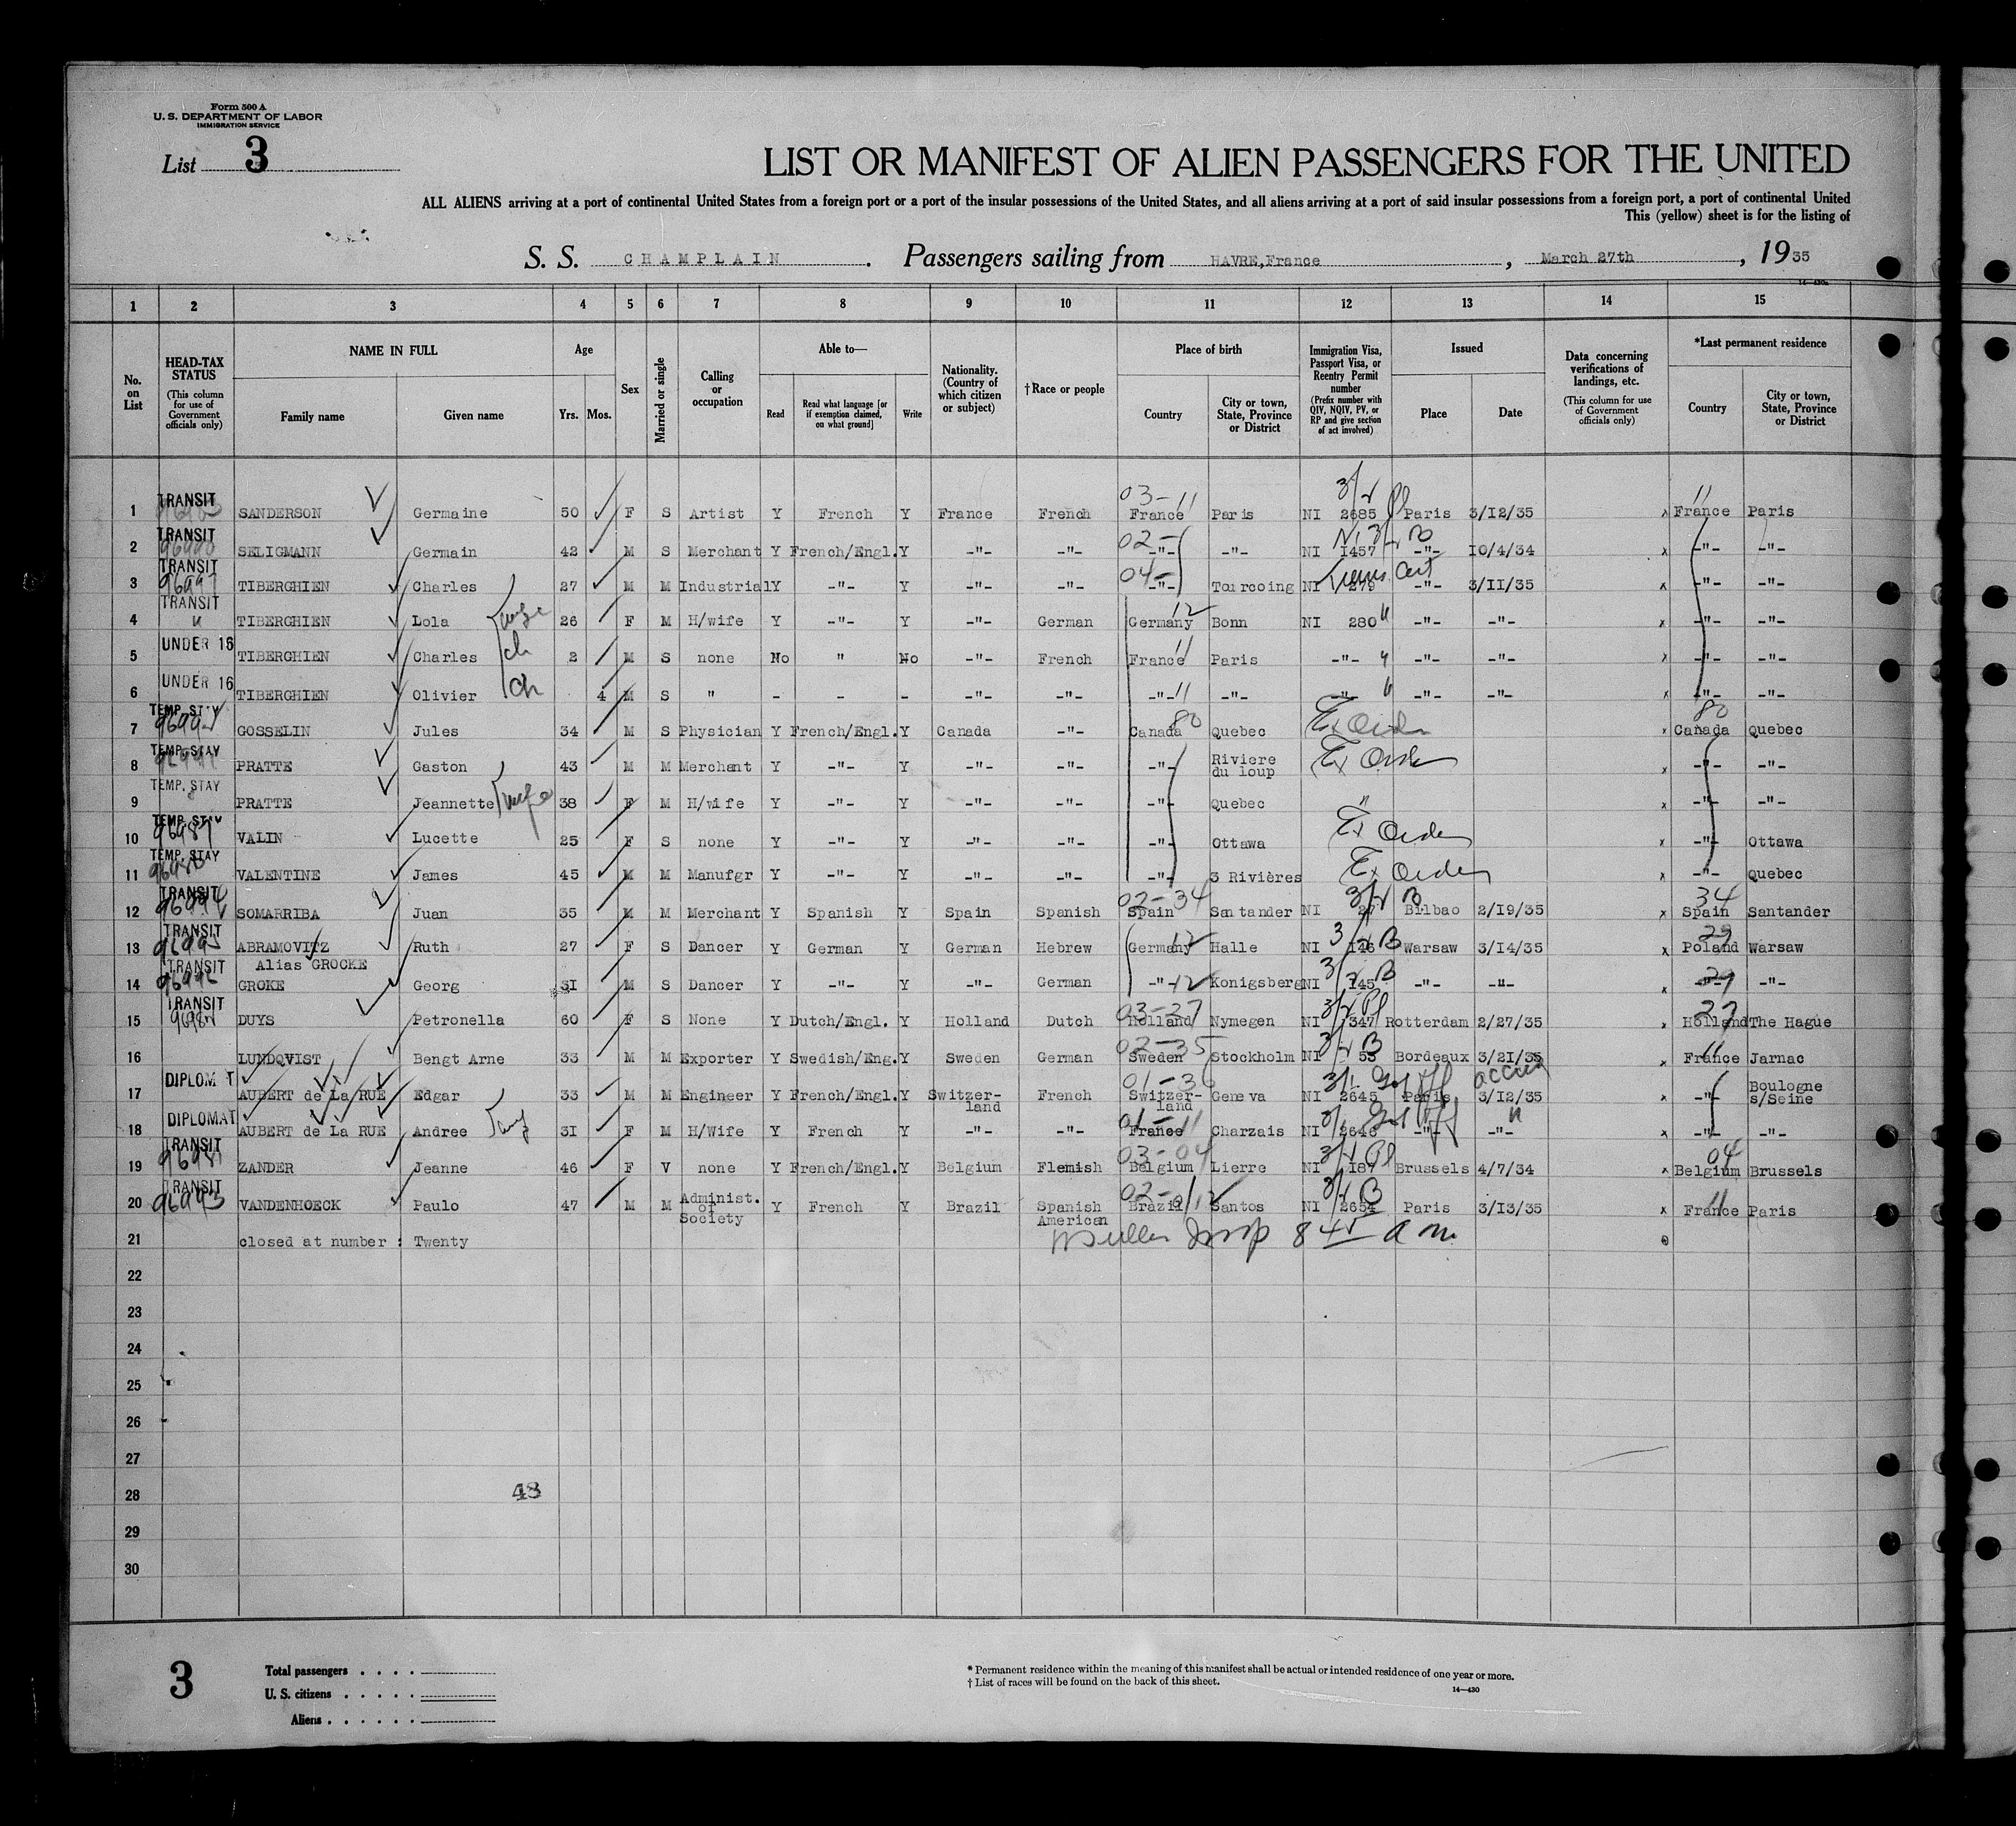 Form 500 A
U. S. DEPARTMENT OF LABOR
IMMIGRATION SERVICE
List 3
LIST OR MANIFEST OF ALIEN PASSENGERS FOR THE UNITED
ALL ALIENS arriving at a port of continental United States from a foreign port or a port of the insular possessions of the United States, and all aliens arriving at a port of said insular possessions from a foreign port, a port of continental United
This (yellow) sheet is for the listing of
S. S. CHAMPLAIN. Passengers sailing from HAVRE, France, March 27th, 1935
14-430
1 2 3 4 5 6 7 8 9 10 11 12 13 14 15
No. on List
HEAD-TAX STATUS (This column for use of Government officials only)
NAME IN FULL Family name Given name
Age Yrs. Mos.
Sex
Married or single
Calling or occupation
Able to— Read Read what language [or if exemption claimed, on what ground] Write
Nationality. (Country of which citizen or subject)
†Race or people
Place of birth Country City or town, State, Province or District
Immigration Visa, Passport Visa, or Reentry Permit number (Prefix number with QIV, NQIV, PV, or RP and give section of act involved)
Issued Place Date
Data concerning verifications of landings, etc. (This column for use of Government officials only)
*Last permanent residence Country City or town, State, Province or District
1 TRANSIT SANDERSON Germaine 50 F S Artist Y French Y France French 03-11 France Paris NI 2685 Paris 3/12/35 x 11 France Paris
2 TRANSIT SELIGMANN Germain 42 M S Merchant Y French/Engl. Y -"- -"- 02- -"- -"- NI 1457 -"- 10/4/34 x -"- -"-
3 TRANSIT TIBERGHIEN Charles 27 M M Industrial Y -"- Y -"- -"- 04- -"- Tourcoing NI 279 Trans Cert -"- 3/11/35 x -"- -"-
4 TRANSIT " TIBERGHIEN Lola wife 26 F M H/wife Y -"- Y -"- German 12 Germany Bonn NI 280 " -"- -"- x -"- -"-
5 UNDER 16 TIBERGHIEN Charles ch 2 M S none No " No -"- French 11 France Paris -"- " -"- -"- x -"- -"-
6 UNDER 16 TIBERGHIEN Olivier ch 4 M S " - - - -"- -"- -"- 11 -"- -"- " -"- -"- x -"- -"-
7 TEMP. STAY GOSSELIN Jules 34 M S Physician Y French/Engl. Y Canada -"- Canada 80 Quebec Ex Order x 80 Canada Quebec
8 TEMP. STAY PRATTE Gaston 43 M M Merchant Y -"- Y -"- -"- -"- Riviere du loup Ex Order x -"- -"-
9 TEMP. STAY PRATTE Jeannette wife 38 F M H/wife Y -"- Y -"- -"- -"- Quebec " x -"- -"-
10 TEMP. STAY 96987 VALIN Lucette 25 F S none Y -"- Y -"- -"- -"- Ottawa Ex Order x -"- Ottawa
11 TEMP. STAY VALENTINE James 45 M M Manufgr Y -"- Y -"- -"- -"- 3 Rivières Ex Order x -"- Quebec
12 TRANSIT SOMARRIBA Juan 35 M M Merchant Y Spanish Y Spain Spanish 02-34 Spain Santander NI 27 Bilbao 2/19/35 x 34 Spain Santander
13 TRANSIT 96995 ABRAMOVITZ Ruth 27 F S Dancer Y German Y German Hebrew Germany 12 Halle NI 146 Warsaw 3/14/35 x 29 Poland Warsaw
Alias GROCKE
14 TRANSIT 96996 GROKE Georg 31 M S Dancer Y -"- Y -"- German -"- 12 Konigsberg NI 145 -"- -"- x -"- -"-
15 TRANSIT DUYS Petronella 60 F S None Y Dutch/Engl. Y Holland Dutch 03-27 Holland Nymegen NI 347 Rotterdam 2/27/35 x 27 Holland The Hague
16 LUNDQVIST Bengt Arne 33 M M Exporter Y Swedish/Eng. Y Sweden German 02-35 Sweden Stockholm NI 53 Bordeaux 3/21/35 x 11 France Jarnac
17 DIPLOMAT AUBERT de La RUE Edgar 33 M M Engineer Y French/Engl. Y Switzer-land French 01-36 Switzer-land Geneva NI 2645 Gov Off Paris 3/12/35 x -"- Boulogne s/Seine
18 DIPLOMAT AUBERT de La RUE Andree 31 F M H/Wife Y French Y -"- -"- 01-11 France Charzais NI 2646 Gov Off -"- -"- x -"- -"-
19 TRANSIT 96981 ZANDER Jeanne 46 F V none Y French/Engl. Y Belgium Flemish 03-04 Belgium Lierre NI 187 Brussels 4/7/34 x 04 Belgium Brussels
20 TRANSIT 96993 VANDENHOECK Paulo 47 M M Administ. of Society Y French Y Brazil Spanish American Brazil Santos NI 2654 Paris 3/13/35 x 11 France Paris
21 closed at number : Twenty Insp 8 45 a m
22
23
24
25
26
27
28 43
29
30
3
Total passengers . . . .
U. S. citizens . . . . .
Aliens . . . . . .
* Permanent residence within the meaning of this manifest shall be actual or intended residence of one year or more.
† List of races will be found on the back of this sheet.
14—430